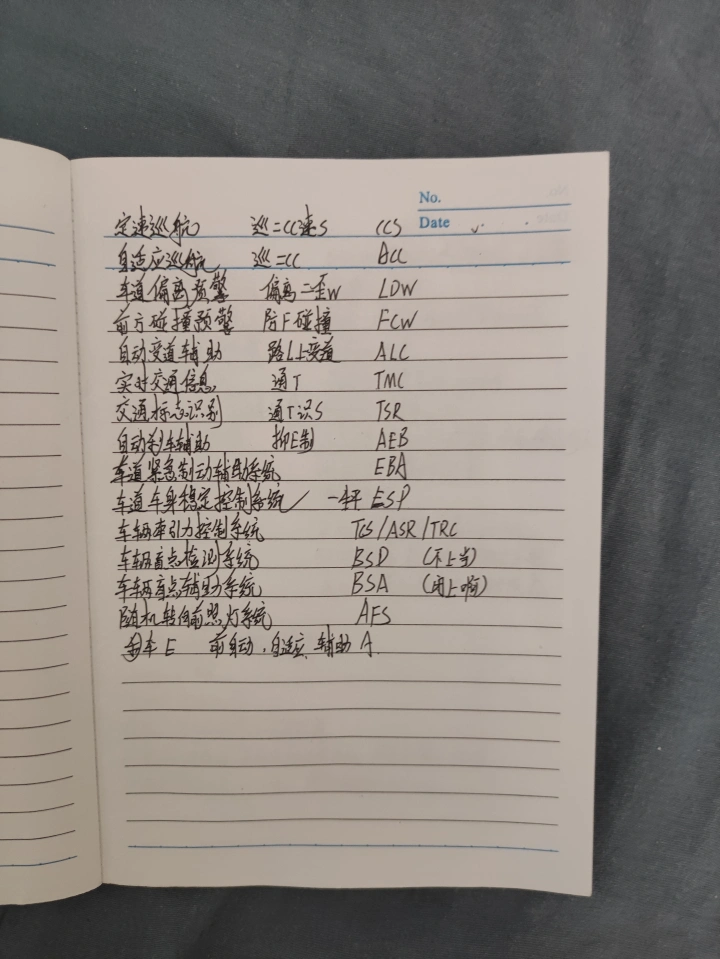 No.
Date
定速巡航 巡=CC速S CCS
自适应巡航 巡=CC ACC
车道偏离预警 偏离=歪W LDW
前方碰撞预警 防F碰撞 FCW
自动变道辅助 路L上变道 ALC
实时交通信息 通T TMC
交通标志识别 通T识S TSR
自动刹车辅助 抑E制 AEB
车道紧急制动辅助系统 EBA
车道车身稳定控制系统 ESP
车辆牵引力控制系统 TCS/ASR/TRC
车辆盲点检测系统 BSD (不上当)
车辆盲点辅助系统 BSA (闭上啊)
随机转向前照灯系统 AFS
车E 前自动,自适应,辅助A